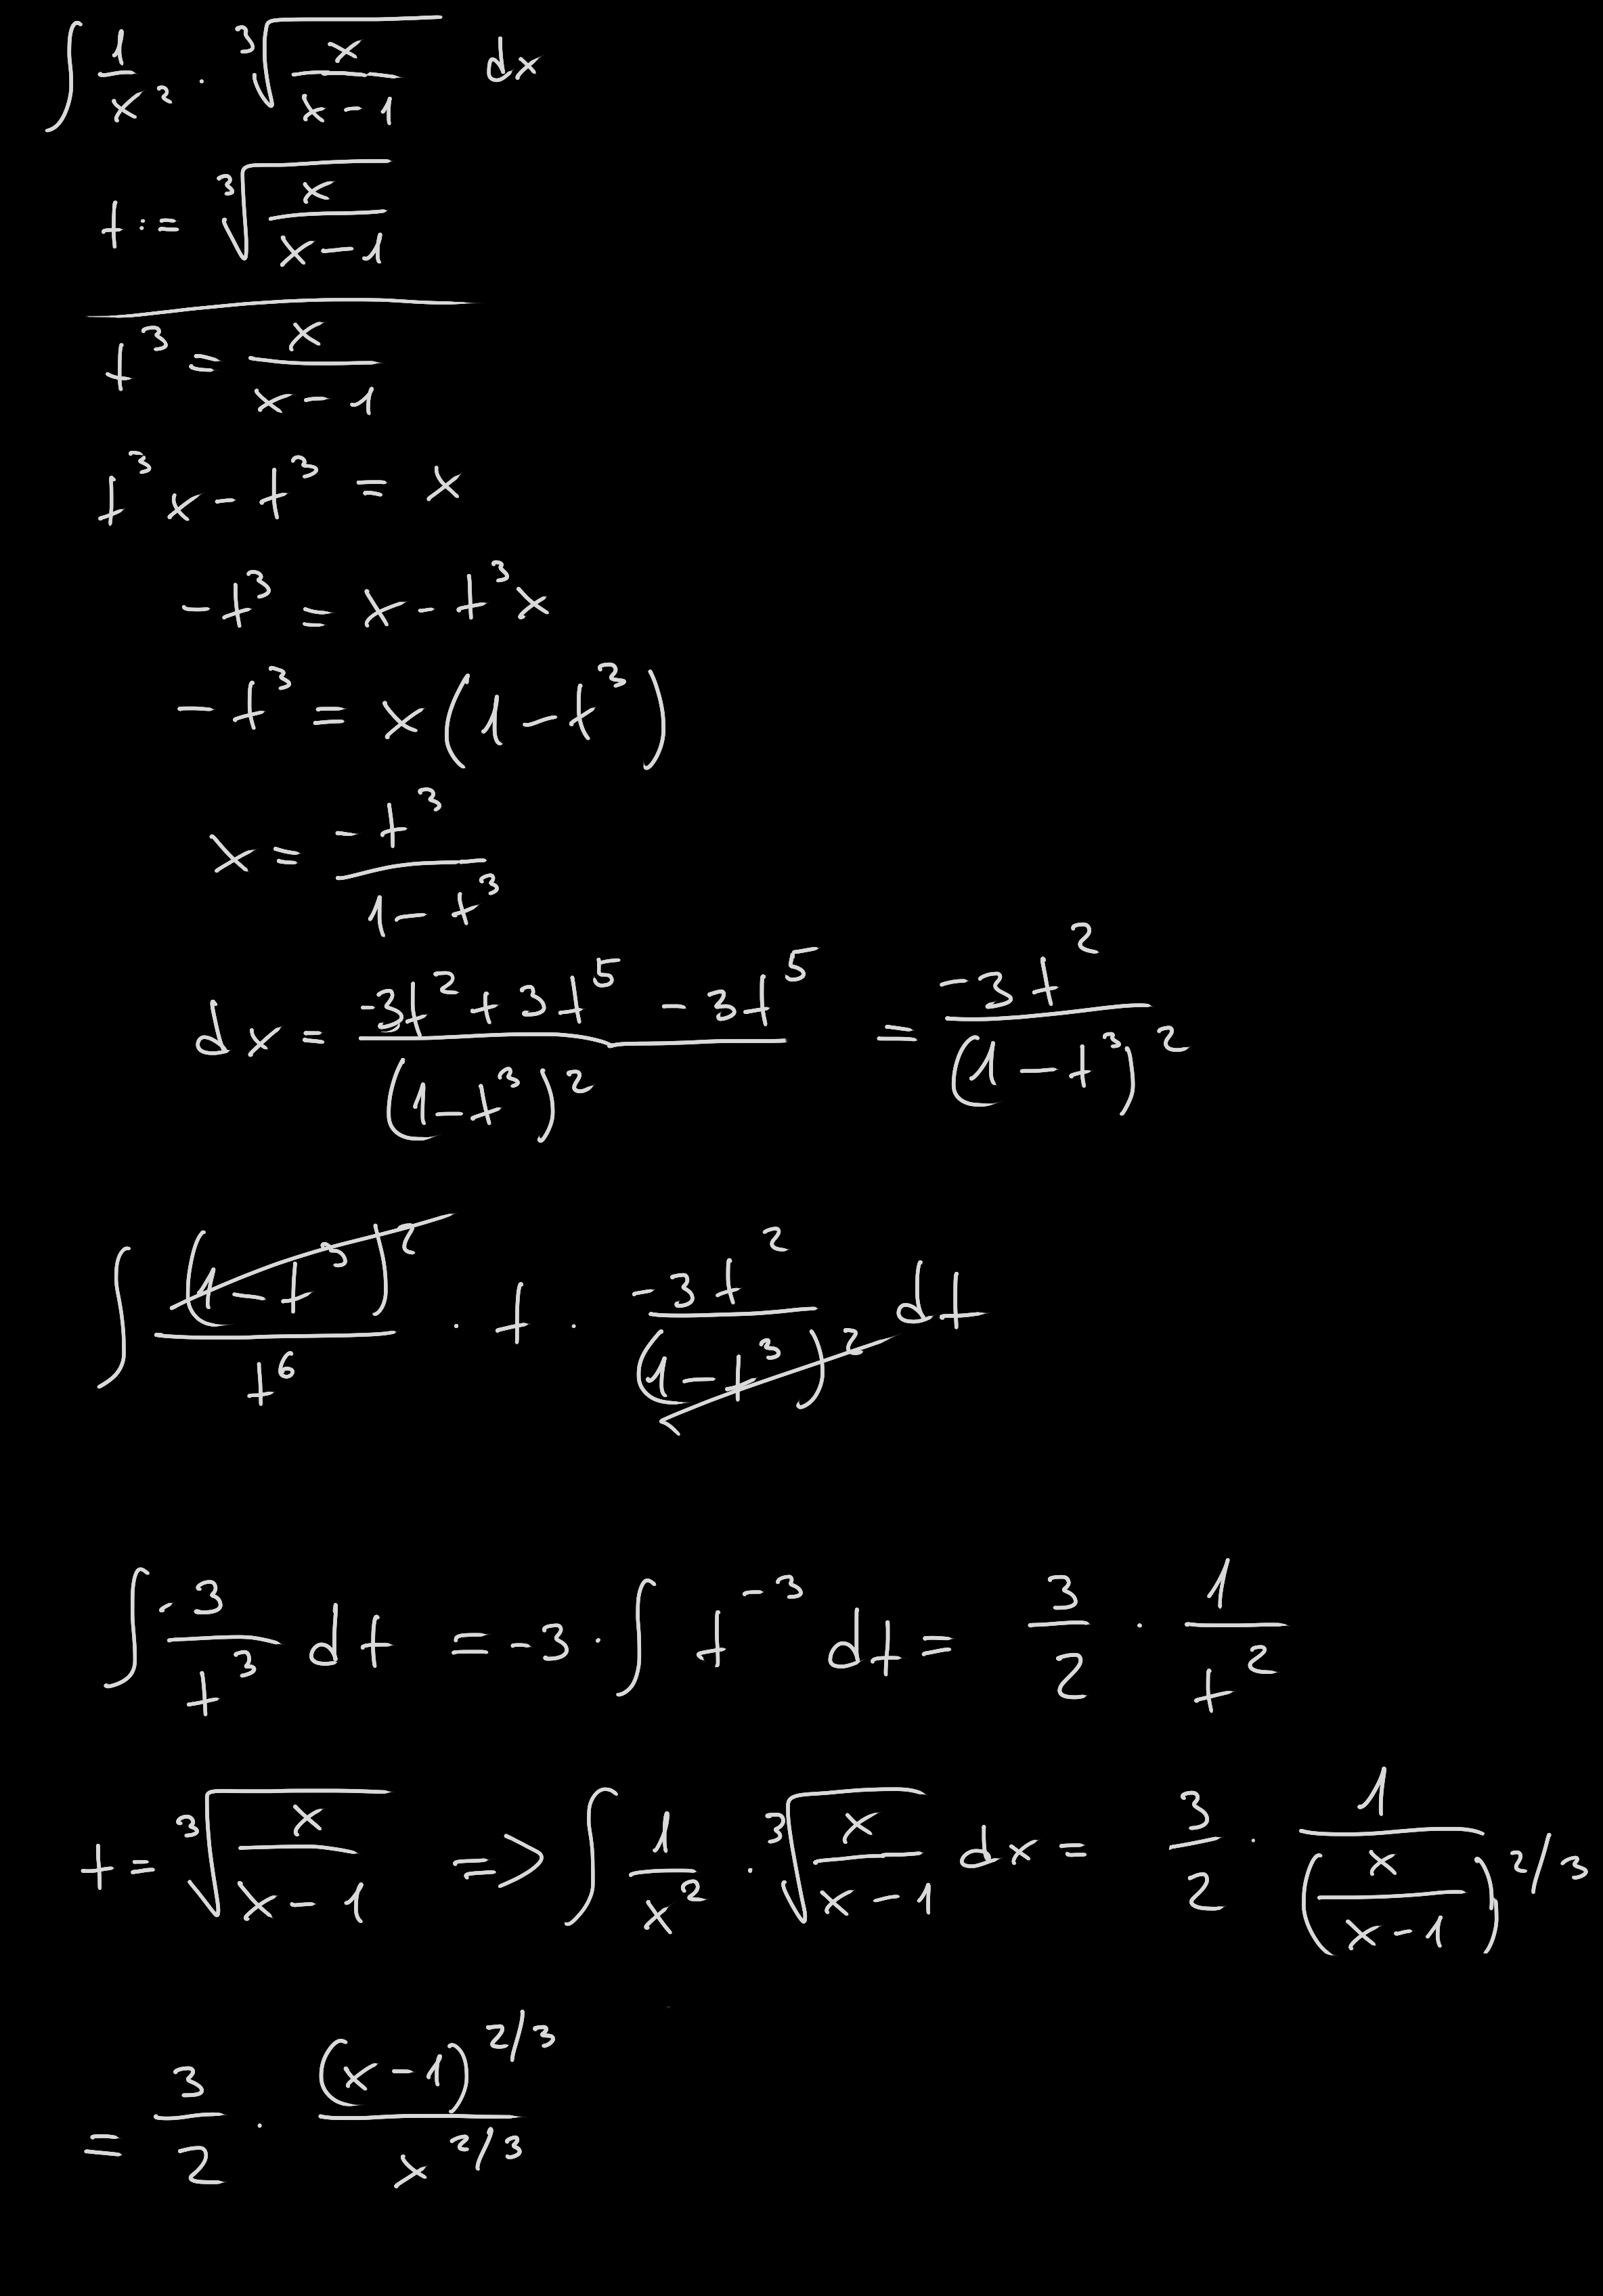 ∫ 1/x² · ∛(x/(x-1)) dx
t := ∛(x/(x-1))
t³ = x/(x-1)
t³x - t³ = x
-t³ = x - t³x
-t³ = x(1-t³)
x = -t³/(1-t³)
dx = (-3t² + 3t⁵ - 3t⁵)/(1-t³)² = -3t²/(1-t³)²
∫ (1-t³)²/t⁶ · t · -3t²/(1-t³)² dt
∫ -3/t³ dt = -3 · ∫ t⁻³ dt = 3/2 · 1/t²
t = ∛(x/(x-1)) => ∫ 1/x² · ∛(x/(x-1)) dx = 3/2 · 1/(x/(x-1))^(2/3)
= 3/2 · (x-1)^(2/3)/x^(2/3)